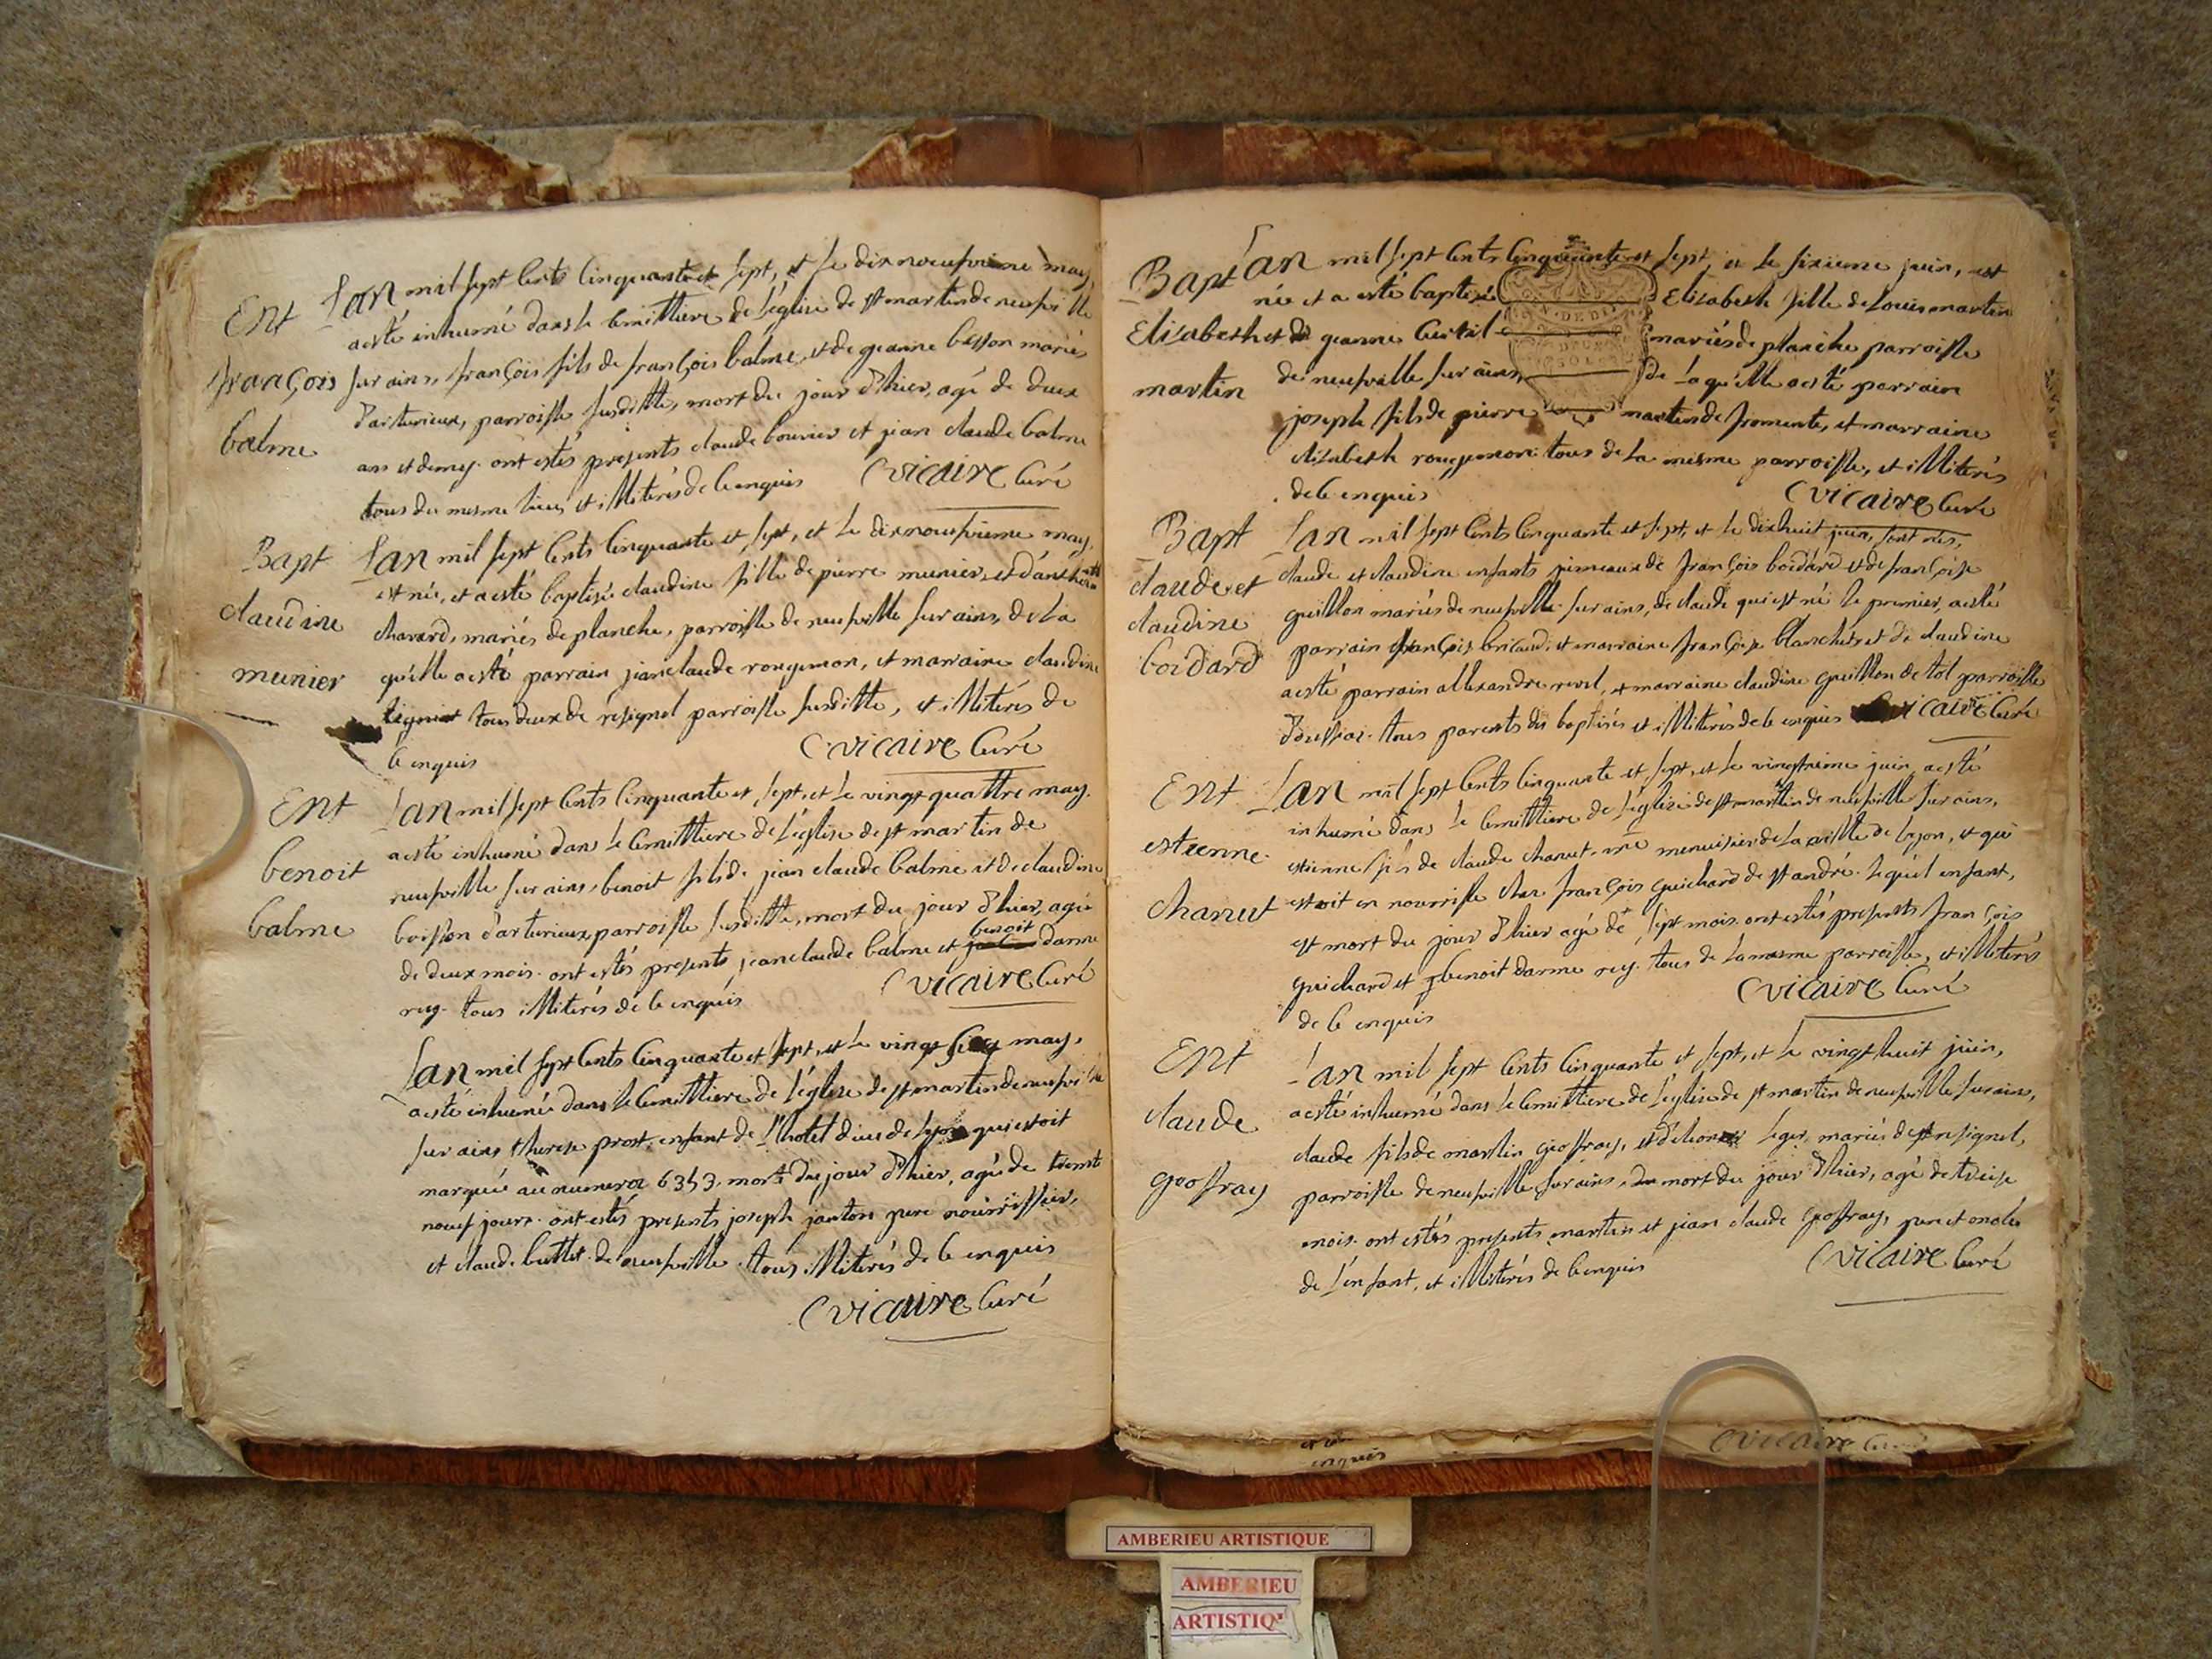 Ent
françois
balme
Lan mil sept cents cinquante et sept, et le dixneufvieme may
a esté inhumé dans le cemittiere de l'église de st martin de neufville
sur ains, françois fils de françois balme et de jeanne besson mariés
d'arturieux, parroisse susditte, mort du jour d'hier, agé de deux
ans et demy. ont estés presents claude bouvier et jean claude balme
tous du mesme lieu, et illiterés de ce enquis Cvicaire curé
Bapt
claudine
munier
Lan mil sept cents cinquante et sept, et le dixneufvieme may,
est née, et a esté baptisée claudine fille de pierre munier, et d'anthelmette
chavard, mariés de planche, parroisse de neufville sur ains, de la
qu'elle a esté parrain jean claude rougemon, et marraine claudine
tous deux de resignel parroisse susditte, et illiterés de
ce enquis Cvicaire curé
Ent
benoit
balme
Lan mil sept cents cinquante et sept, et le vingt quattre may.
a esté inhumé dans le cemittiere de l'église de st martin de
neufville sur ains, benoit fils de jean claude balme et de claudine
boisson d'arturieux parroisse susditte, mort du jour d'hier, agé
de deux mois. ont estés presents jean claude balme et benoit darme
rey. tous illiterés de ce enquis Cvicaire curé
Lan mil sept cents cinquante et sept, et le vingt six may,
a esté inhumée dans le cemittiere de l'église de st martin de neufville
sur ains therese prost, enfant de l'hotel dieu de lyon qui estoit
marquée au numero 6353. morte du jour d'hier, agée de trente
neuf jours. ont estés presents joseph janton pere nourrissier,
et claude buttet de neufville. tous illiterés de ce enquis
Cvicaire curé
Bapt
Elizabeth
martin
Lan mil sept cents cinquante et sept, et le sixieme juin, est
née et a esté baptisée Elizabeth fille de Louis martin
et de jeanne mariés de planche parroisse
de neufville sur ains, de la qu'elle a esté parrain
joseph fils de pierre martin de fromente, et marraine
elizabeth rougemon. tous de la mesme parroisse, et illiterés
de ce enquis Cvicaire curé
Bapt
claude et
claudine
boidard
Lan mil sept cents cinquante et sept, et le dixhuit juin, sont nés,
claude et claudine enfants jumeaux de françois boidard et de françoise
guillon mariés de neufville sur ains, de claude qui est né le premier, a esté
parrain françois bricaud, et marraine françoise blanchet et de claudine
a esté parrain allexandre revel, et marraine claudine guillon de tol parroisse
d'oussiat. tous parents des baptisés et illiterés de ce enquis Cvicaire curé
Ent
estienne
chanut
Lan mil sept cents cinquante et sept, et le vingtieme juin, a esté
inhumé dans le cemittiere de l'église de st martin de neufville sur ains,
estienne fils de claude chanut me menuisier de la ville de lyon, et qui
estoit en nourrisse chez françois guichard de st andré. lequel enfant,
est mort du jour d'hier agé de sept mois. ont estés presents françois
guichard et benoit darme rey. tous de la mesme parroisse, et illiterés
de ce enquis Cvicaire curé
Ent
claude
geoffray
Lan mil sept cents cinquante et sept, et le vingt huit juin,
a esté inhumé dans le cemittiere de l'église de st martin de neufville sur ains,
claude fils de martin geoffray, et leger, mariés de resignel,
parroisse de neufville sur ains, mort du jour d'hier, agé de treize
mois. ont estés presents martin et jean claude geoffray, pere et oncle
de l'enfant, et illiterés de ce enquis Cvicaire curé
enquis
Cvicaire curé
AMBERIEU ARTISTIQUE
AMBERIEU
ARTISTIQ